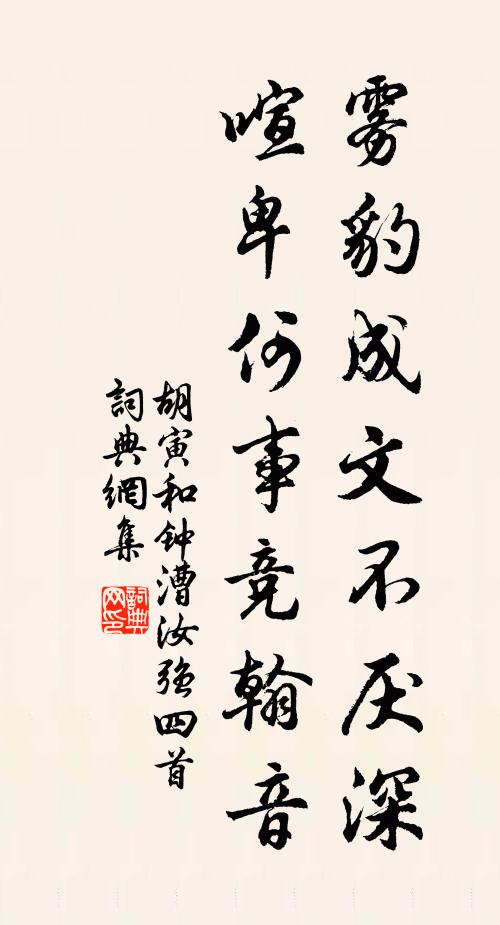 雾豹成文不厌深
喧卑何事竞翰音
胡寅和钟漕汝强四首
詞典網集
詞典
网印